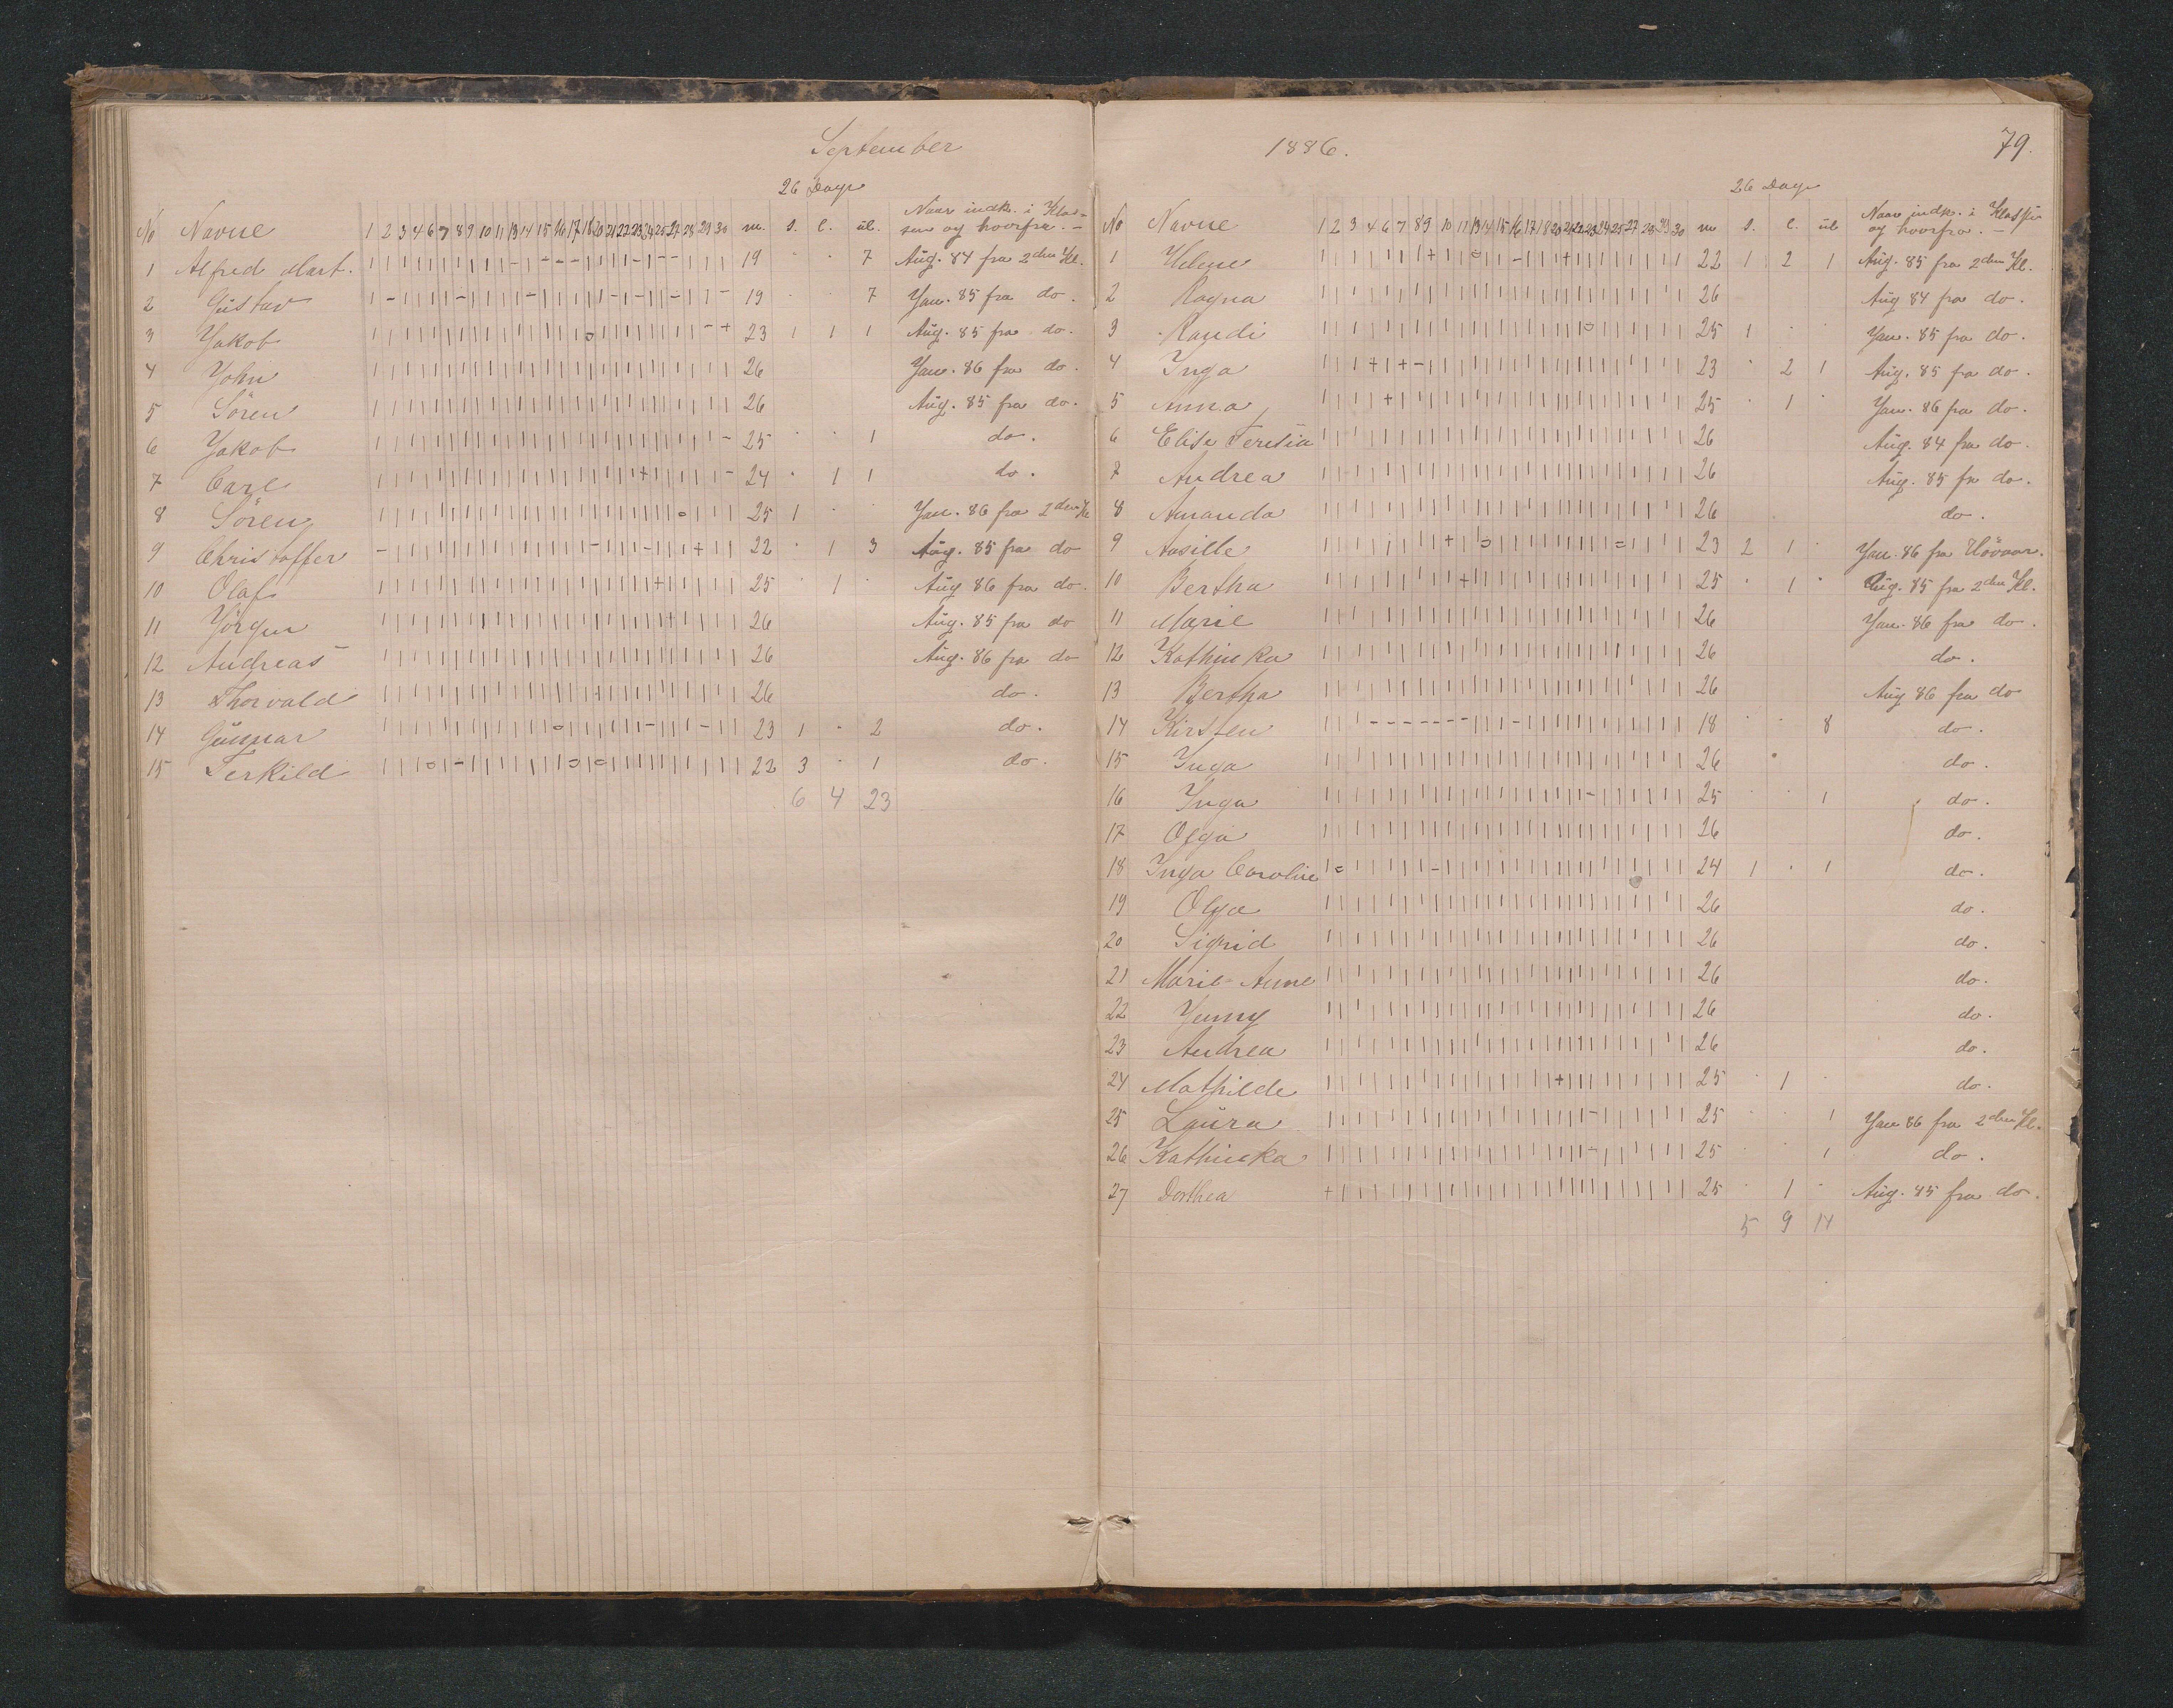 September
26 Dage
No Navne 1 2 3 4 6 7 8 9 10 11 13 14 15 16 17 18 20 21 22 23 24 25 27 28 29 30 m. s. l. ul. Naar indk. i Klas-
sen og hvorfra. —
1 Alfred Mart. 19 · · 7 Aug. 84 fra 2den Kl.
2 Gustav 19 · · 7 Jan. 85 fra do.
3 Jakob 23 1 1 1 Aug. 85 fra do.
4 John 26 Jan. 86 fra do.
5 Sören 26 Aug. 85 fra do.
6 Jakob 25 · · 1 do.
7 Carl 24 · 1 1 do.
8 Sören 25 1 · · Jan. 86 fra 2den Kl
9 Christoffer 22 · 1 3 Aug. 85 fra do
10 Olaf 25 · 1 · Aug 86 fra do.
11 Jörgen 26 Aug. 85 fra do
12 Andreas 26 Aug. 86 fra do
13 Thorvald 26 do.
14 Gunnar 23 1 · 2 do.
15 Terkild 22 3 · 1 do.
6 4 23
1886.
79.
26 Dage
No Navne 1 2 3 4 6 7 8 9 10 11 13 14 15 16 17 18 20 21 22 23 24 25 27 28 29 30 m s. l. ul Naar indk. i Klassen
og hvorfra. —
1 Helene 22 1 2 1 Aug. 85 fra 2den Kl.
2 Ragna 26 Aug 84 fra do.
3 Randi 25 1 · · Jan. 85 fra do.
4 Inga 23 · 2 1 Aug. 85 fra do.
5 Anna 25 · 1 · Jan. 86 fra do.
6 Elise Teresia 26 Aug. 84 fra do.
7 Andrea 26 Aug. 85 fra do.
8 Amanda 26 do.
9 Aasille 23 2 1 · Jan. 86 fra Höivaar.
10 Bertha 25 · 1 · Aug. 85 fra 2den Kl.
11 Marie 26 Jan. 86 fra do.
12 Kathinka 26 do.
13 Bertha 26 Aug 86 fra do
14 Kirsten 18 · · 8 do.
15 Inga 26 do.
16 Inga 25 · · 1 do.
17 Olga 26 do.
18 Inga Caroline 24 1 · 1 do.
19 Olga 26 do.
20 Sigrid 26 do.
21 Marie-Anne 26 do.
22 Jenny 26 do.
23 Andrea 26 do.
24 Mathilde 25 · 1 · do.
25 Laura 25 · · 1 Jan 86 fra 2den Kl.
26 Kathinka 25 · · 1 do.
27 Dorthea 25 · 1 · Aug. 85 fra do.
5 9 14